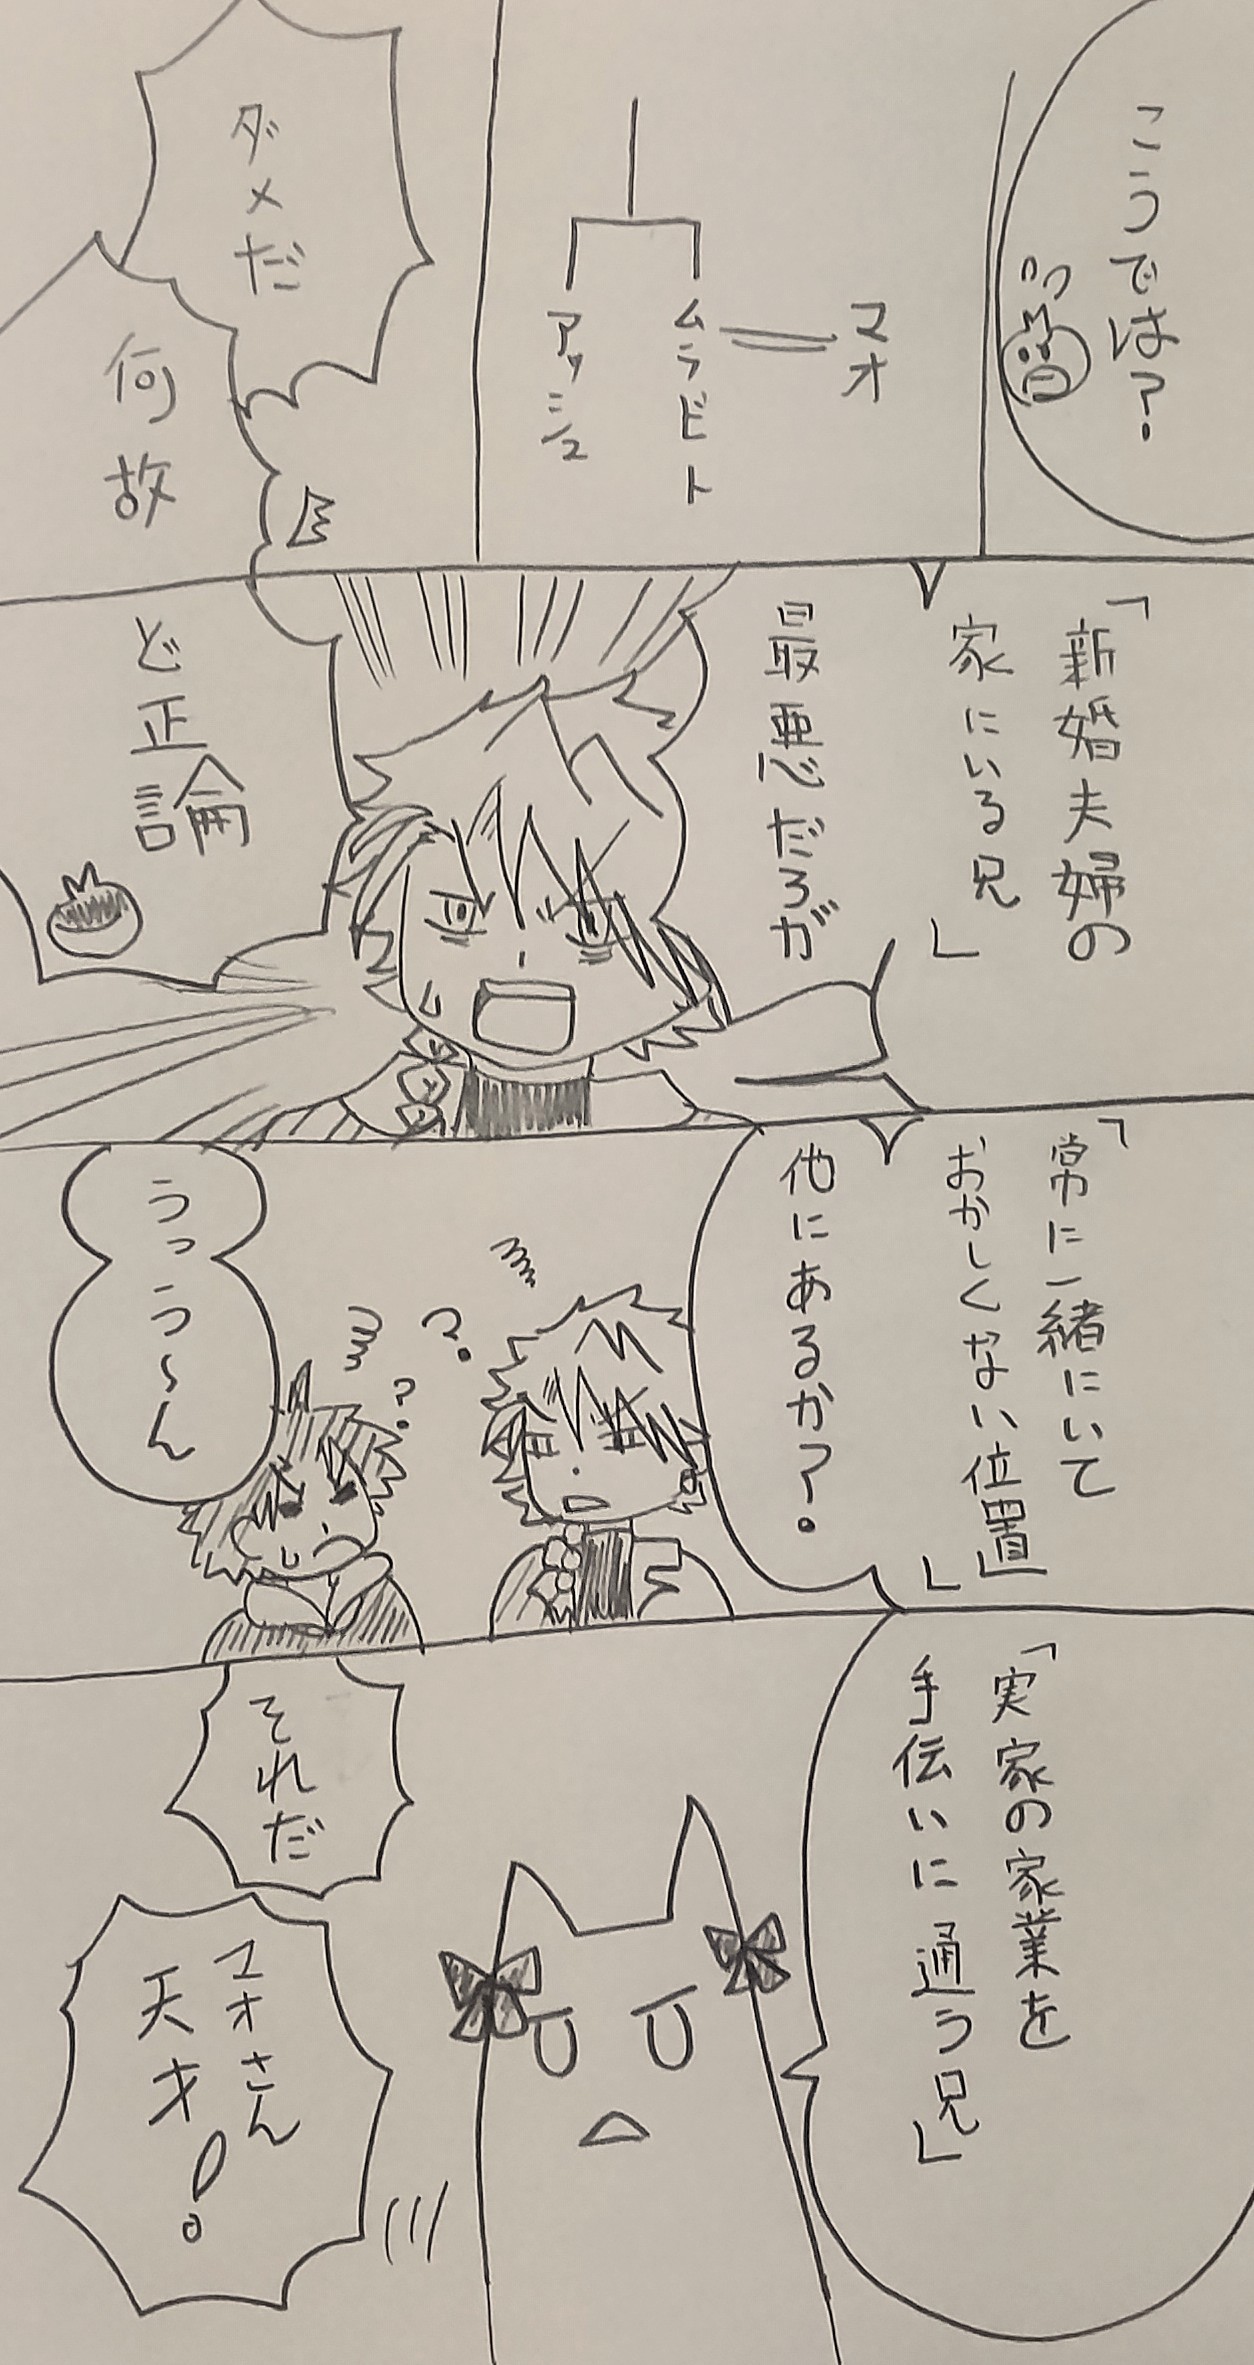 こうでは?
マオ
ムラビト
アッシュ
ダメだ
何故
「新婚夫婦の
家にいる兄」
最悪だろが
ど正論
「常に一緒にいて
おかしくない位置」
他にあるか?
うっう〜ん
「実家の家業を
手伝いに通う兄」
それだ
マオさん
天才!